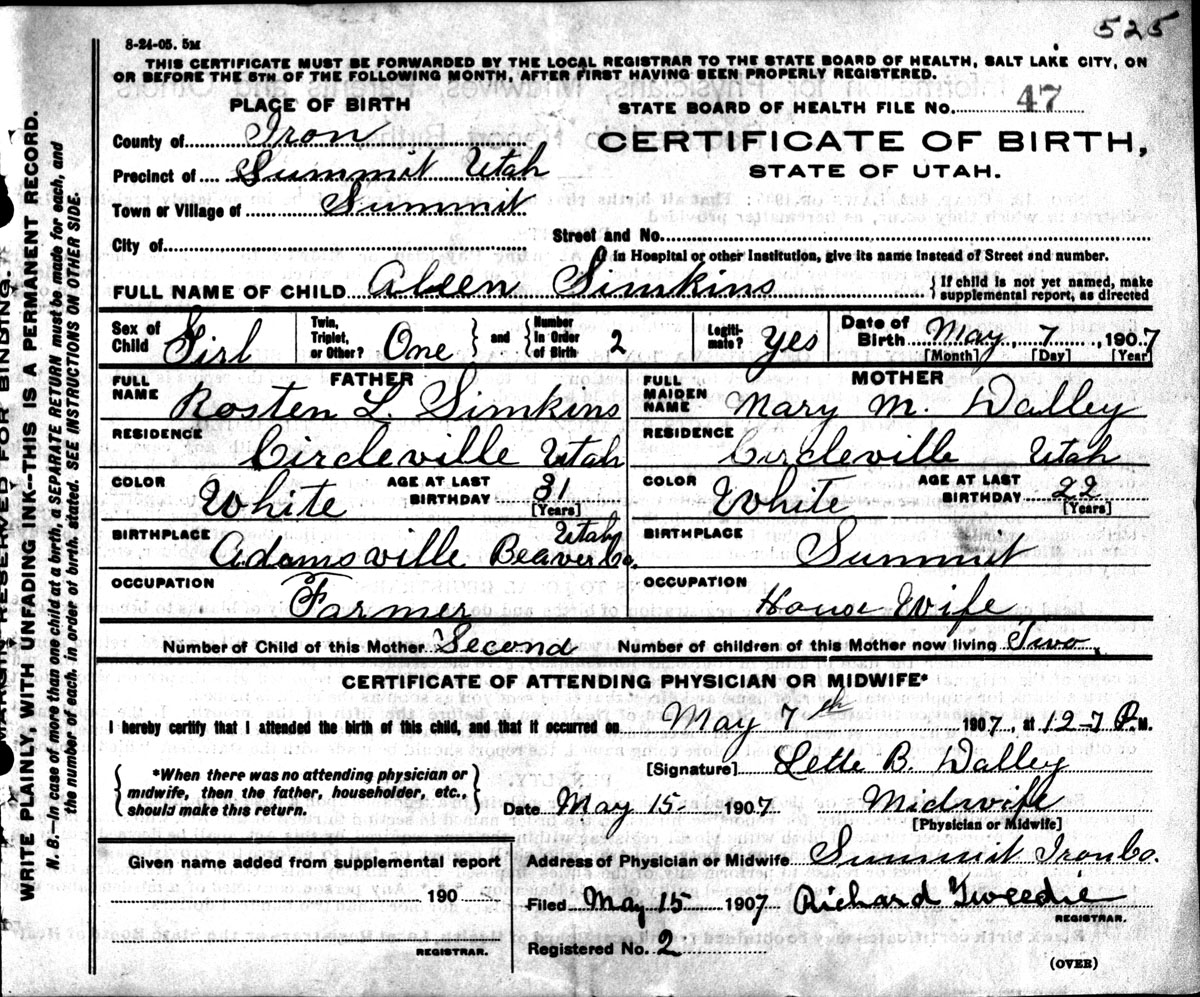 525
8-24-05. 5M
THIS CERTIFICATE MUST BE FORWARDED BY THE LOCAL REGISTRAR TO THE STATE BOARD OF HEALTH, SALT LAKE CITY, ON
OR BEFORE THE 5TH OF THE FOLLOWING MONTH, AFTER FIRST HAVING BEEN PROPERLY REGISTERED.
PLACE OF BIRTH
STATE BOARD OF HEALTH FILE NO. 47
County of Iron
CERTIFICATE OF BIRTH,
Precinct of Summit Utah
STATE OF UTAH.
Town or Village of Summit
City of
Street and No.
If in Hospital or other Institution, give its name instead of Street and number.
FULL NAME OF CHILD Aleen Simkins { If child is not yet named, make supplemental report, as directed
Sex of Child Girl Twin, Triplet, or Other? One } and { Number in Order of Birth 2 Legitimate? Yes Date of Birth May 7, 1907
[Month] [Day] [Year]
FATHER MOTHER
FULL NAME Rosten L. Simkins FULL MAIDEN NAME Mary M. Dalley
RESIDENCE Circleville Utah RESIDENCE Circleville Utah
COLOR White AGE AT LAST BIRTHDAY 31 [Years] COLOR White AGE AT LAST BIRTHDAY 22 [Years]
BIRTHPLACE Adamsville Beaver Co. Utah BIRTHPLACE Summit
OCCUPATION Farmer OCCUPATION House Wife
Number of Child of this Mother Second Number of children of this Mother now living Two.
CERTIFICATE OF ATTENDING PHYSICIAN OR MIDWIFE*
I hereby certify that I attended the birth of this child, and that it occurred on May 7th 1907, at 12-7 P.M.
*When there was no attending physician or midwife, then the father, householder, etc., should make this return.
[Signature] Lette B. Dalley
Date May 15 1907 Midwife
[Physician or Midwife]
Given name added from supplemental report
190
REGISTRAR.
Address of Physician or Midwife Summit Iron Co.
Filed May 15 1907 Richard Tweedie
REGISTRAR.
Registered No. 2
(OVER)
MARGIN RESERVED FOR BINDING.
WRITE PLAINLY, WITH UNFADING INK--THIS IS A PERMANENT RECORD.
N. B.--In case of more than one child at a birth, a SEPARATE RETURN must be made for each, and
the number of each, in order of birth, stated. SEE INSTRUCTIONS ON OTHER SIDE.